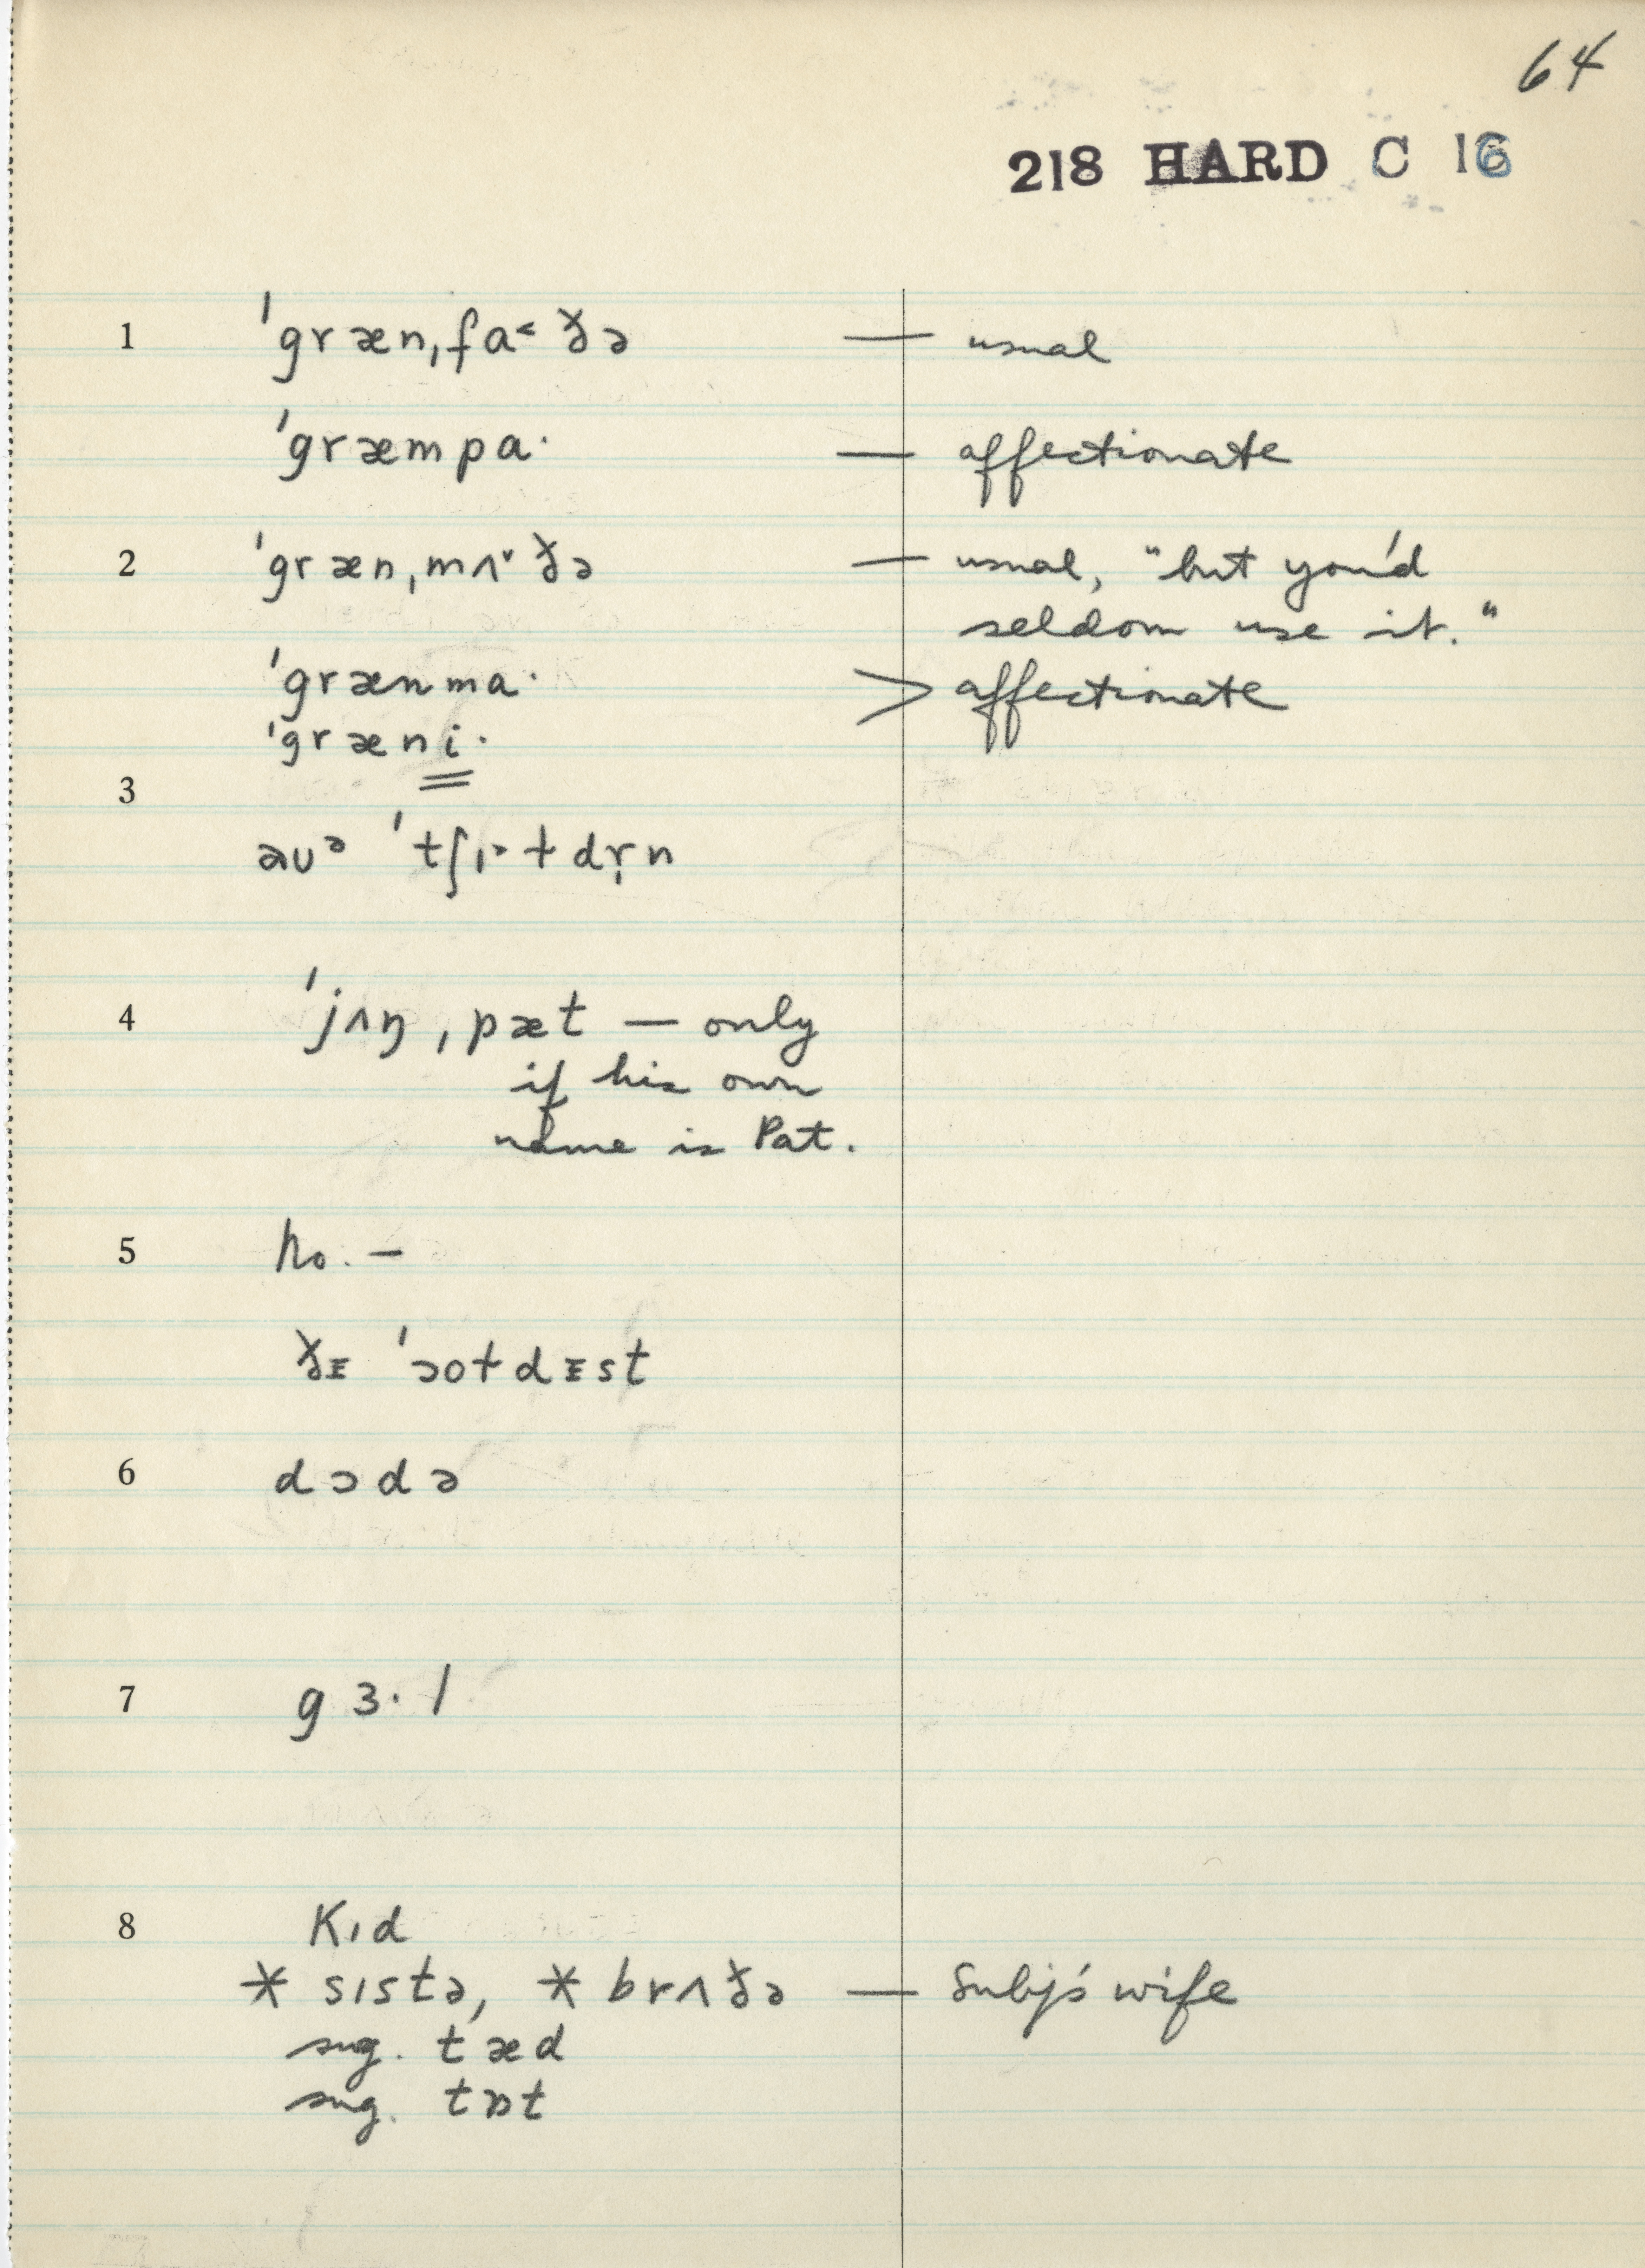 64
218 HARD C 16
1 ˈgrænˌfa˂ðə — usual
ˈgræmpa· — affectionate
2 ˈgrænˌmʌ˅ðə — usual, "but you'd
seldom use it."
ˈgrænma· > affectionate
ˈgræni·
3
ɑʊᵊ ˈtʃɪ˃ɫdr̩n
4 ˈjʌŋ ˌpæt — only
if his own
name is Pat.
5 no. —
ðᵻ ˈɔoɫdᵻst
6 dɔdə
7 gɜ·l
8 kɪd
* sɪstə, * brʌðə — Subj's wife
sug. tæd
sug. tɒt